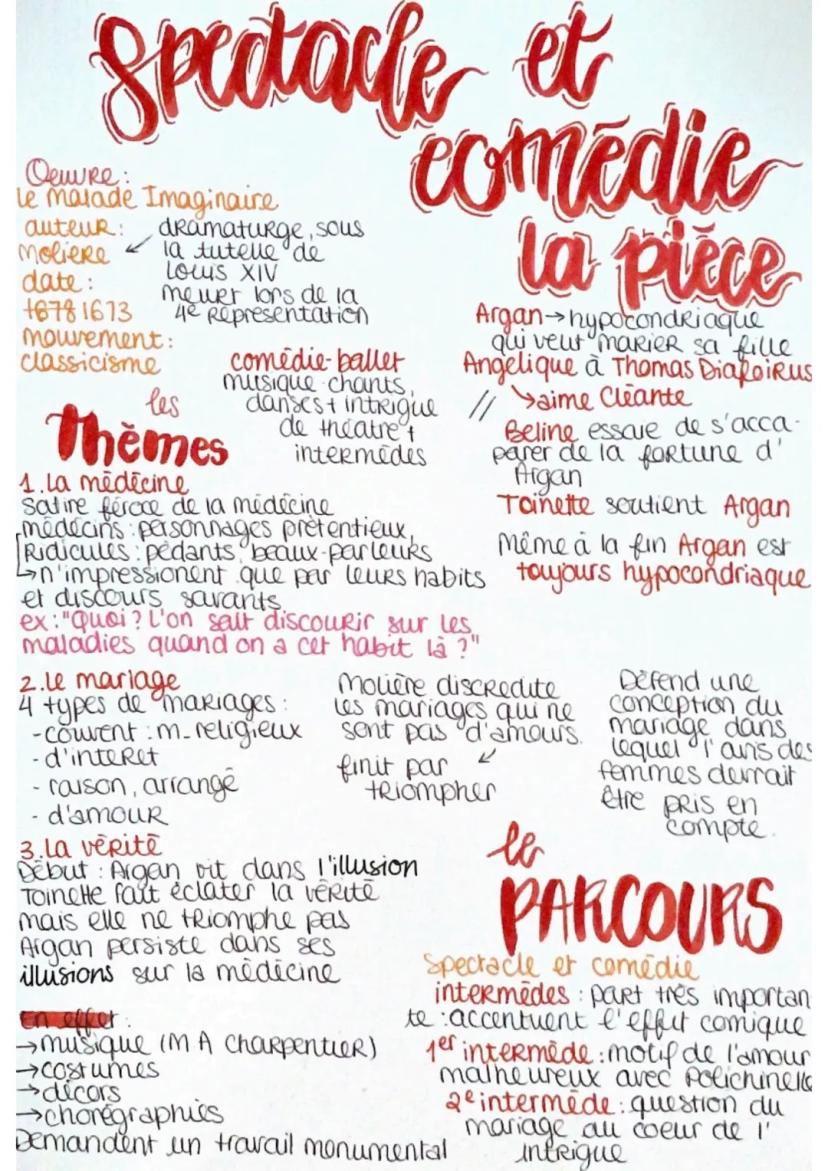 Spectacle et
comédie
la pièce
Oeuvre :
Le malade Imaginaire
auteur :
Molière
date :
1673
mouvement :
classicisme
dramaturge, sous
la tutelle de
Louis XIV
meurt lors de la
4e Représentation
comédie-ballet
musique-chants,
danses + intrigue
de théâtre +
intermèdes
Argan → hypocondriaque
qui veut marier sa fille
Angélique à Thomas Diafoirus
// ↳ aime Cléante
Béline essaie de s'acca-
parer de la fortune d'
Argan
Toinette soutient Argan
Même à la fin Argan est
toujours hypocondriaque
les
Thèmes
1. La médecine
Satire féroce de la médecine
médecins : personnages prétentieux,
Ridicules : pédants, beaux-parleurs
↳ n'impressionent que par leurs habits
et discours savants
ex : "Quoi ? L'on sait discourir sur les
maladies quand on a cet habit là ?"
2. Le mariage
4 types de mariages :
- couvent : m. religieux
- d'interet
- raison, arrangé
- d'amour
Molière discrédite
les mariages qui ne
sont pas d'amours.
finit par
triompher
Défend une
conception du
mariage dans
lequel l'avis des
femmes devrait
être pris en
compte.
3. La vérité
Début : Argan vit dans l'illusion
Toinette fait éclater la vérité
mais elle ne triomphe pas
Argan persiste dans ses
illusions sur la médecine
En effet :
→ musique (M A Charpentier)
→ costumes
→ décors
→ chorégraphies
Demandent un travail monumental
le
PARCOURS
Spectacle et comédie
intermèdes : part très importan
te : accentuent l'effet comique
1er intermède : motif de l'amour
malheureux avec Polichinelle
2e intermède : question du
mariage au coeur de l'
intrigue